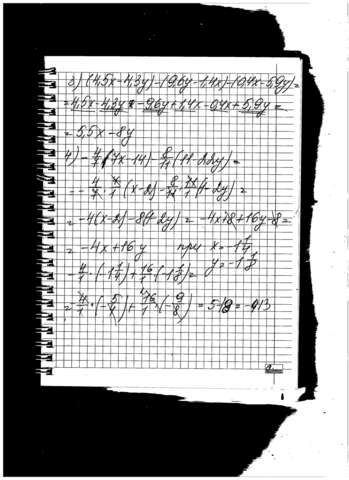 3) (4,5x-4,3y)-(9,6y-1,4x)-(0,4x-5,9y)=
=4,5x-4,3y-9,6y+1,4x-0,4x+5,9y=
=5,5x-8y
4) -4/7(7x-14)-8/11(11-22y)=
=-4/7·7/1(x-2)-8/11·11/1(1-2y)=
=-4(x-2)-8(1-2y)=-4x+8+16y-8=
=-4x+16y при x=-1 1/4
y=-1 1/8
-4/1·(-1 1/4)+16/1·(-1 1/8)=
=-4/1·(-5/4)+16/1·(-9/8)=5-18=-13